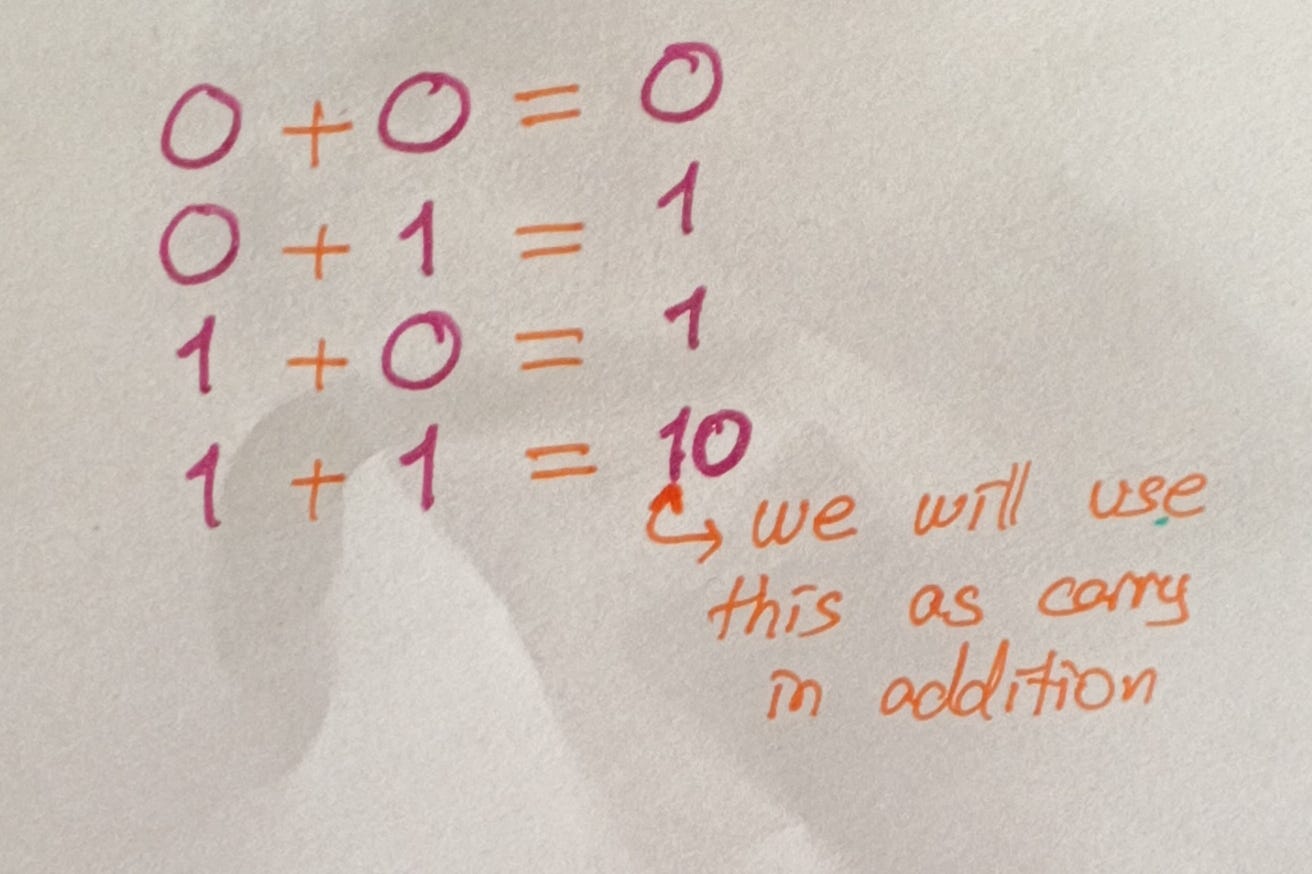 0 + 0 = 0
0 + 1 = 1
1 + 0 = 1
1 + 1 = 10
we will use
this as carry
in addition